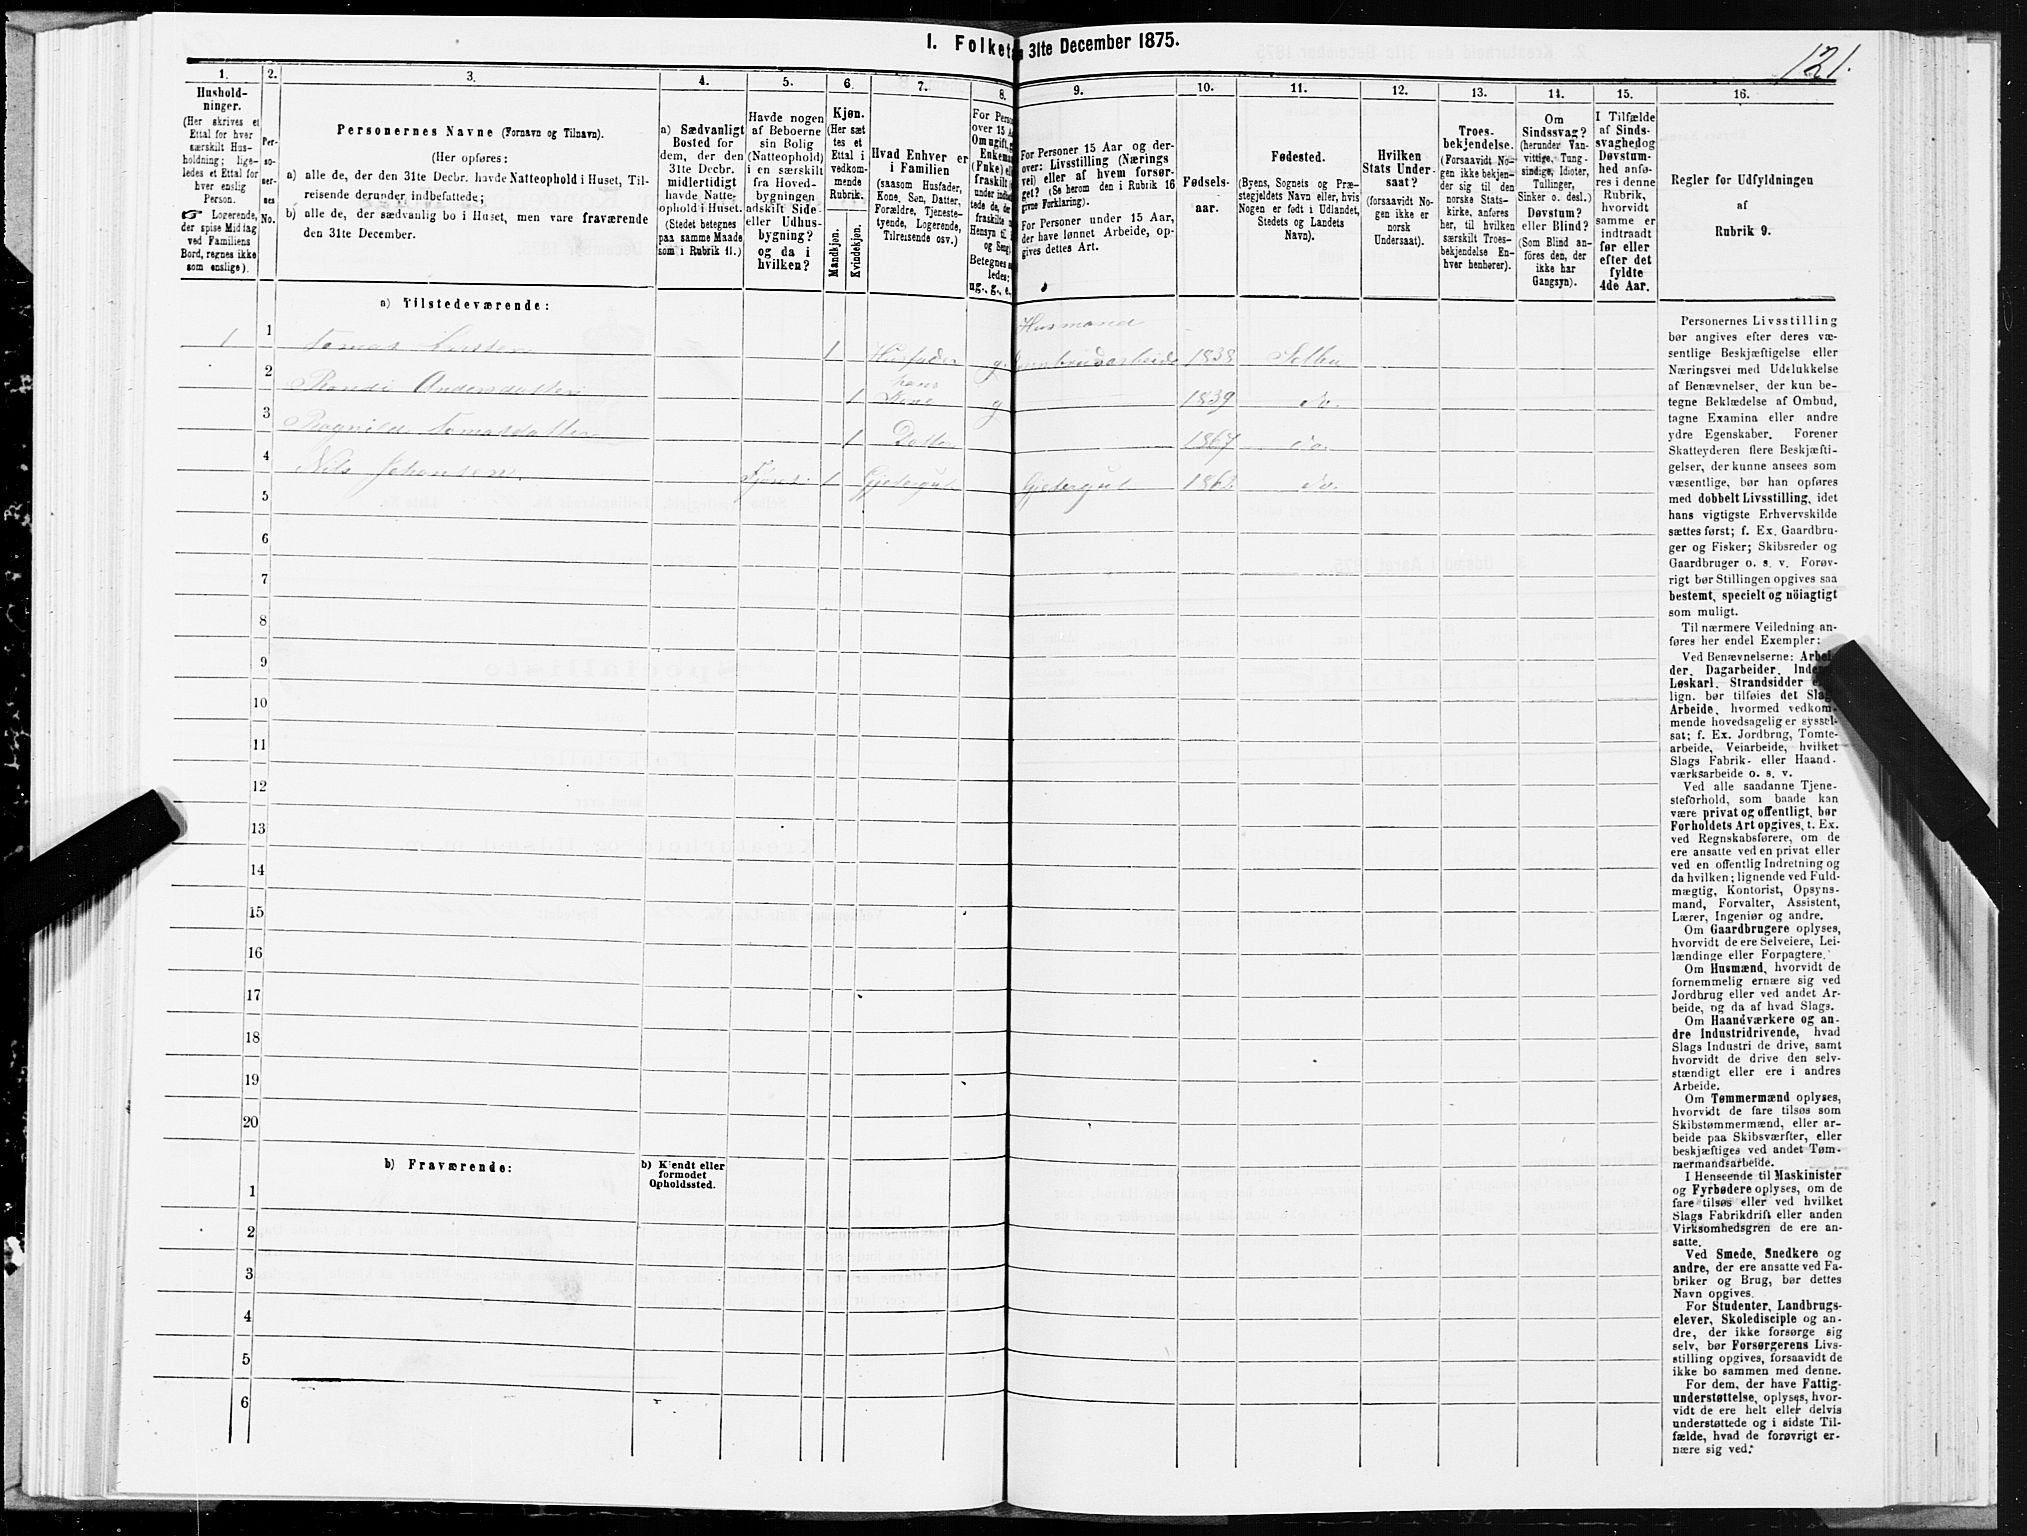 1. Folket
n 31te December 1875.
121.
1.
2.
3.
4.
5.
6.
7.
8.
9.
10.
11.
12.
13.
14.
15.
16.
Hushold-
ninger.
(Her skrives et
Ettal for hver
særskilt Hus-
holdning; lige-
ledes et Ettal for
hver enslig
Person.
☞ Logerende,
der spise Middag
ved Familiens
Bord, regnes ikke
som enslige).
Per-
so-
ner-
nes
No.
Personernes Navne (Fornavn og Tilnavn).
(Her opføres:
a) alle de, der den 31te Decbr. havde Natteophold i Huset, Til-
reisende derunder indbefattede;
b) alle de, der sædvanlig bo i Huset, men vare fraværende
den 31te December.
a) Sædvanligt
Bosted for
dem, der den
31te Decbr.
midlertidigt
havde Natte-
ophold i Huset.
(Stedet betegnes
paa samme Maade
som i Rubrik 11.)
Havde nogen
af Beboerne
sin Bolig
(Natteophold)
i en særskilt
fra Hoved-
bygningen
adskilt Side-
eller Udhus-
bygning?
og da i
hvilken?
Kjøn.
(Her sæt
tes et
Ettal i
vedkom-
mende
Rubrik.
Mandkjøn.
Kvindekjøn.
Hvad Enhver er
i Familien
(saasom Husfader,
Kone, Søn, Datter,
Forældre, Tjeneste-
tyende, Logerende,
Tilreisende osv.)
For Pers
over 15 A
Om ugift, g
Enkema
(Enke) el
fraskilt
og
Betegnes
ledes:
ug., g., e.
For Personer 15 Aar og der-
over: Livsstilling (Nærings
vei) eller af hvem forsør-
get? (Se herom den i Rubrik 16
givne Forklaring).
For Personer under 15 Aar,
der have lønnet Arbeide, op-
gives dettes Art.
Fødsels-
aar.
Fødested.
(Byens, Sognets og Præ-
stegjeldets Navn eller, hvis
Nogen er født i Udlandet,
Stedets og Landets
Navn).
Hvilken
Stats Under-
saat?
(forsaavidt No-
gen ikke er
norsk
Undersaat).
Troes-
bekjendelse.
(Forsaavidt No-
gen ikke bekjen-
der sig til den
norske Stats-
kirke, anføres
her, til hvilken
særskilt Troes-
bekjendelse En-
hver henhører).
Om
Sindssvag?
(herunder Van-
vittige, Tung-
sindige, Idioter,
Tullinger,
Sinker o. desl.)
Døvstum?
eller Blind?
(Som Blind an-
føres den, der
ikke har
Gangsyn).
I Tilfælde
af Sinds-
svaghed og
Døvstum-
hed anfø-
res i denne
Rubrik,
hvorvidt
samme er
indtraadt
før eller
efter det
fyldte
4de Aar.
Regler for Udfyldningen
af
Rubrik 9.
a) Tilstedeværende:
Husmand
1 1 Tomas 1 Husfader g. 1838 Selbu
hans
2 Randi Andersdatter 1 Kone g 1839 do.
3 Ragnild Tomasdatter 1 Datter 1867 do.
4 Nils Johansen Fjøset 1 Gjetergut Gjetergut 1862 do.
5
6
7
8
9
10
11
12
13
14
15
16
17
18
19
20
b) Fraværende:
b) Kjendt eller
formodet
Opholdssted.
1
2
3
4
5
6
Personernes Livsstilling
bør angives efter deres væ-
sentlige Beskjæftigelse eller
Næringsvei med Udelukkelse
af Benævnelser, der kun be-
tegne Beklædelse af Ombud,
tagne Examina eller andre
ydre Egenskaber. Forener
Skatteyderen flere Beskjæfti-
gelser, der kunne ansees som
væsentlige, bør han opføres
med dobbelt Livsstilling, idet
hans vigtigste Erhvervskilde
sættes først; f. Ex. Gaardbru-
ger og Fisker; Skibsreder og
Gaardbruger o. s. v. Forøv-
rigt bør Stillingen opgives saa
bestemt, specielt og nöiagtigt
som muligt.
Til nærmere Veiledning an-
føres her endel Exempler:
Ved Benævnelserne: Arbei-
der, Dagarbeider, Inder
Løskarl, Strandsidder
lign. bør tilføies det Slag
Arbeide, hvormed vedkom-
mende hovedsagelig er syssel-
sat; f. Ex. Jordbrug, Tomte-
arbeide, Veiarbeide, hvilket
Slags Fabrik- eller Haand-
værksarbeide o. s. v.
Ved alle saadanne Tjene-
steforhold, som baade kan
være privat og offentligt, bør
Forholdets Art opgives, t. Ex.
ved Regnskabsførere, om de
ere ansatte ved en privat eller
ved en offentlig Indretning og
da hvilken; lignende ved Fuld-
mægtig, Kontorist, Opsyns-
mand, Forvalter, Assistent,
Lærer, Ingeniør og andre.
Om Gaardbrugere oplyses,
hvorvidt de ere Selveiere, Lei-
lændinge eller Forpagtere.
Om Husmænd, hvorvidt de
fornemmelig ernære sig ved
Jordbrug eller ved andet Ar-
beide, og da af hvad Slags.
Om Haandværkere og an-
dre Industridrivende, hvad
Slags Industri de drive, samt
hvorvidt de drive den selv-
stændigt eller ere i andres
Arbeide.
Om Tømmermænd oplyses,
hvorvidt de fare tilsøs som
Skibstømmermænd, eller ar-
beide paa Skibsværfter, eller
beskjæftiges ved andet Tøm-
mermandsarbeide.
I Henseende til Maskinister
og Fyrbødere oplyses, om de
fare tilsøs eller ved hvilket
Slags Fabrikdrift eller anden
Virksomhedsgren de ere an-
satte.
Ved Smede, Snedkere og
andre, der ere ansatte ved Fa-
briker og Brug, bør dettes
Navn opgives.
For Studenter, Landbrugs-
elever, Skoledisciple og an-
dre, der ikke forsørge sig
selv, bør Forsørgerens Livs-
stilling opgives, forsaavidt de
ikke bo sammen med denne.
For dem, der have Fattig-
understøttelse, oplyses, hvor-
vidt de ere helt eller delvis
understøttede og i sidste Til-
fælde, hvad de forøvrigt er-
nære sig ved.